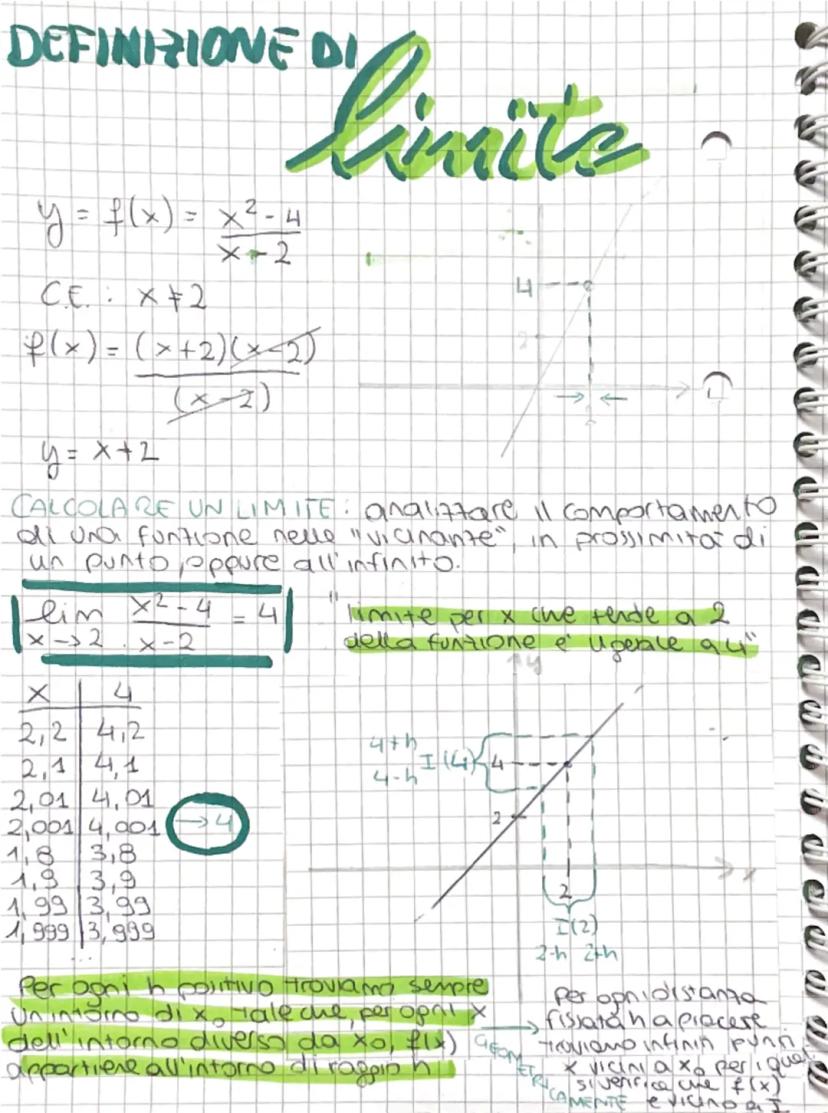 DEFINIZIONE DI
limite
y = f(x) = x² - 4 / x - 2
C.E. : x ≠ 2
f(x) = (x+2)(x-2) / (x-2)
y = x+2
4
2
CALCOLARE UN LIMITE : analizzare il comportamento
di una funzione nelle "vicinanze", in prossimità di
un punto, oppure all'infinito.
lim x→2 x² - 4 / x - 2 = 4
"limite per x che tende a 2
della funzione è uguale a 4"
x | 4
2,2 | 4,2
2,1 | 4,1
2,01 | 4,01
2,001 | 4,001 → 4
1,8 | 3,8
1,9 | 3,9
1,99 | 3,99
1,999 | 3,999
y
4+h
4-h
I(4)
4
2
x
2
I(2)
2-h 2+h
Per ogni h positivo troviamo sempre
un intorno di x₀ tale che, per ogni x
dell'intorno diverso da x₀, f(x)
appartiene all'intorno di raggio h
→
GEOMETRICAMENTE
per ogni distanza
fissata h a piacere
troviamo infiniti punti
x vicini a x₀ per i quali
si verifica che f(x)
è vicino a